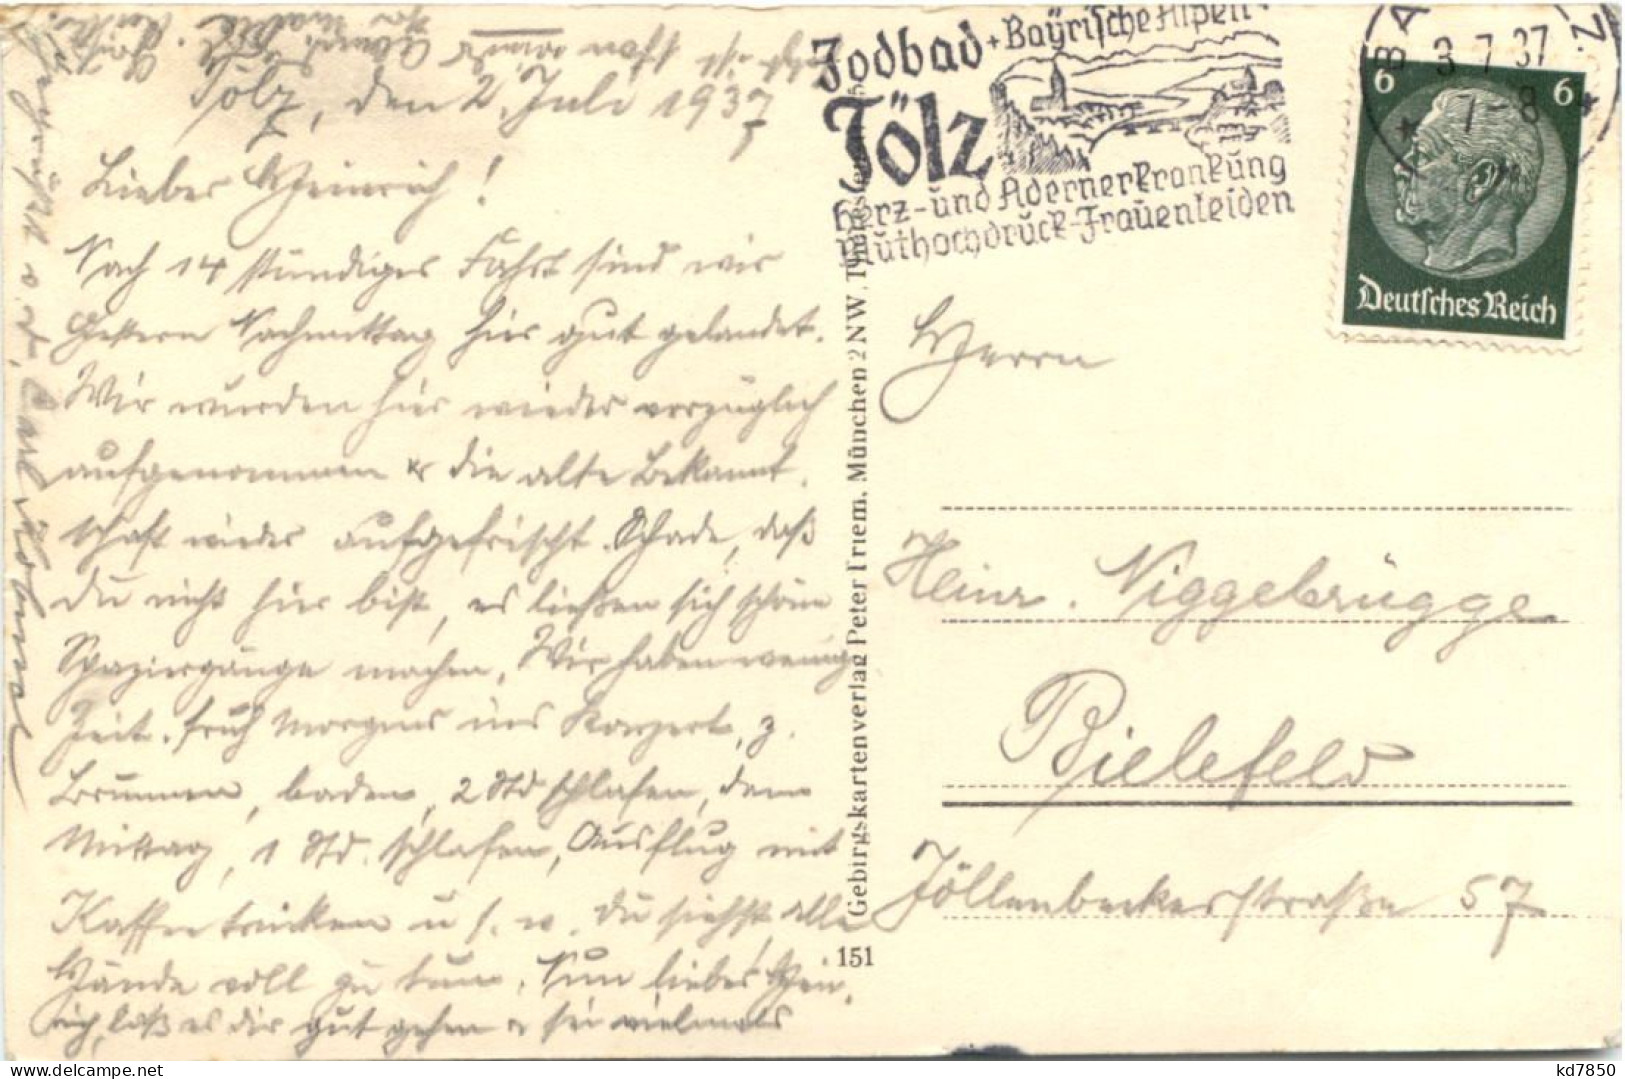 Tölz, den 2. Juli 1937
Lieber Heinrich!
Nach 14 stündiger Fahrt sind wir
gestern Nachmittag hier gut gelandet.
Wir wurden hier wieder vorzüglich
aufgenommen & die alte Bekannt-
schaft wieder aufgefrischt. Schade, daß
du nicht hier bist, es ließen sich schöne
Spaziergänge machen. Wir haben wenig
Zeit. früh Morgens ins Konzert, z.
Brunnen, baden, 2 Std schlafen, dann
Mittag, 1 Std. schlafen, Ausflug mit
Kaffee trinken u. s. w. du siehst alle
Hände voll zu tun. Nun lieber Hein-
rich, laß es dir gut gehen & sei vielmals
gegrüßt v. d. Carl
Jodbad + Bayrische Alpen
Tölz
Herz- und Adernerkrankung
Bluthochdruck-Frauenleiden
BA Z
3 7 37
7-8
6 6
Deutsches Reich
Gebirgskartenverlag Peter Friem, München 2 NW,
151
Herrn
Heinr. Niggebrügge
Bielefeld
Jöllenbeckerstraße 57
kd7850